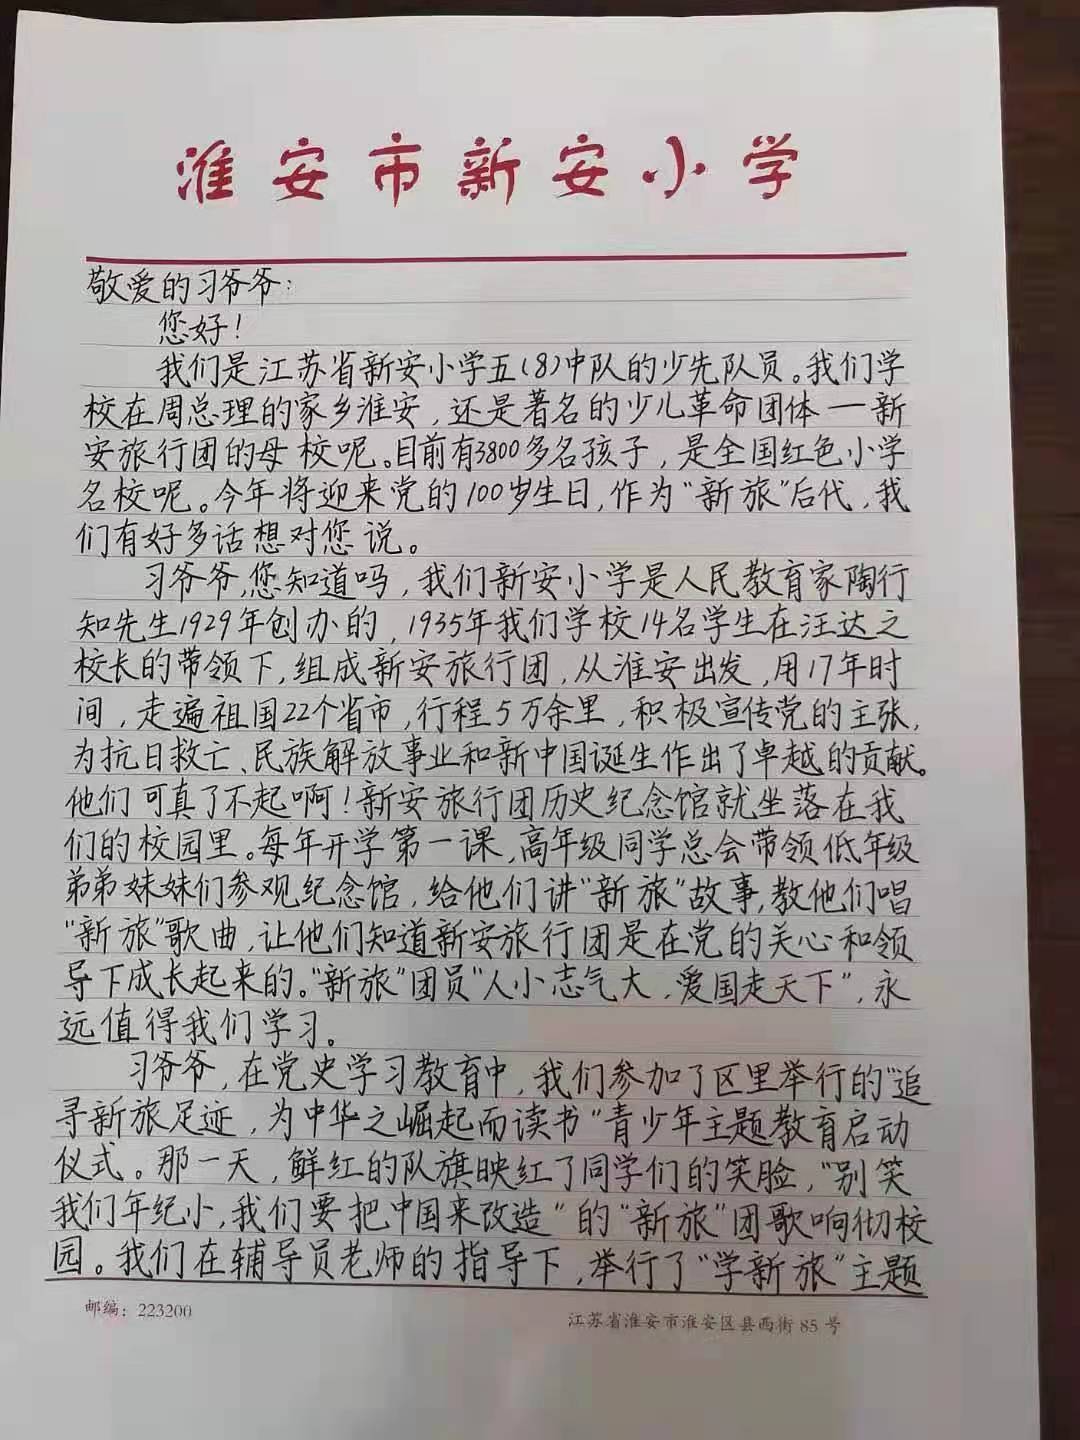 淮安市新安小学
敬爱的习爷爷：
您好！
我们是江苏省新安小学五(8)中队的少先队员。我们学
校在周总理的家乡淮安，还是著名的少儿革命团体—新
安旅行团的母校呢。目前有3800多名孩子，是全国红色小学
名校呢。今年将迎来党的100岁生日，作为“新旅”后代，我
们有好多话想对您说。
习爷爷，您知道吗，我们新安小学是人民教育家陶行
知先生1929年创办的，1935年我们学校14名学生在汪达之
校长的带领下，组成新安旅行团，从淮安出发，用17年时
间，走遍祖国22个省市，行程5万余里，积极宣传党的主张，
为抗日救亡、民族解放事业和新中国诞生作出了卓越的贡献。
他们可真了不起啊！新安旅行团历史纪念馆就坐落在我
们的校园里。每年开学第一课，高年级同学总会带领低年级
弟弟妹妹们参观纪念馆，给他们讲“新旅”故事，教他们唱
“新旅”歌曲，让他们知道新安旅行团是在党的关心和领
导下成长起来的。“新旅”团员“人小志气大，爱国走天下”，永
远值得我们学习。
习爷爷，在党史学习教育中，我们参加了区里举行的“追
寻新旅足迹，为中华之崛起而读书”青少年主题教育启动
仪式。那一天，鲜红的队旗映红了同学们的笑脸，“别笑
我们年纪小，我们要把中国来改造”的“新旅”团歌响彻校
园。我们在辅导员老师的指导下，举行了“学新旅”主题
邮编：223200
江苏省淮安市淮安区县西街85号